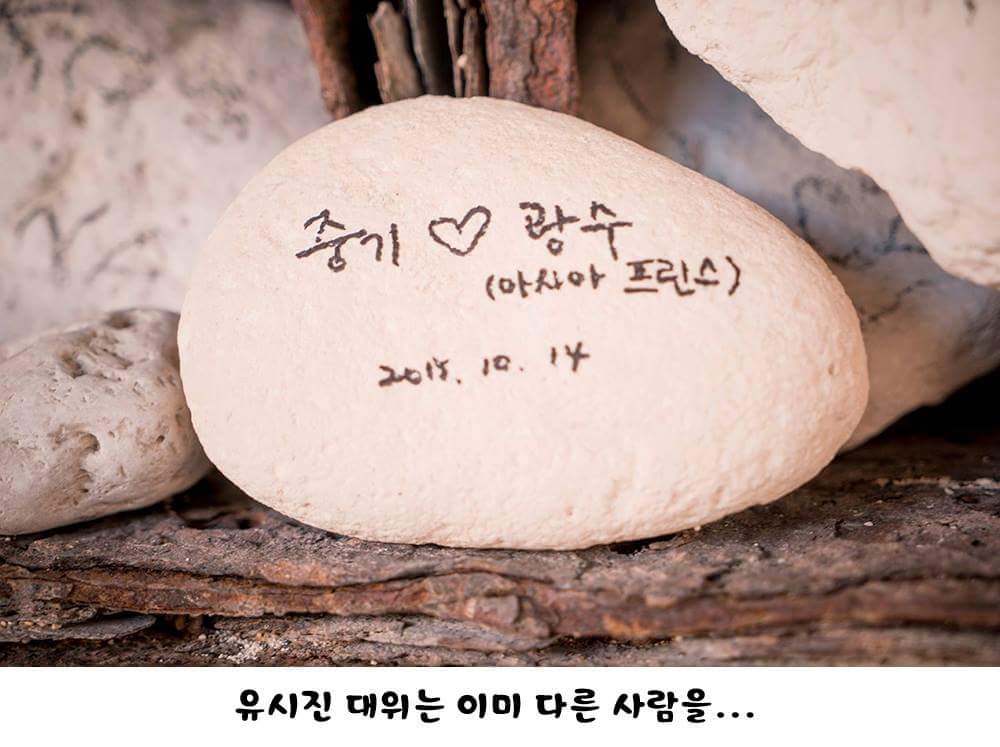 중기 ♡ 광수
(아시아 프린스)
2015. 10. 14
유시진 대위는 이미 다른 사람을...